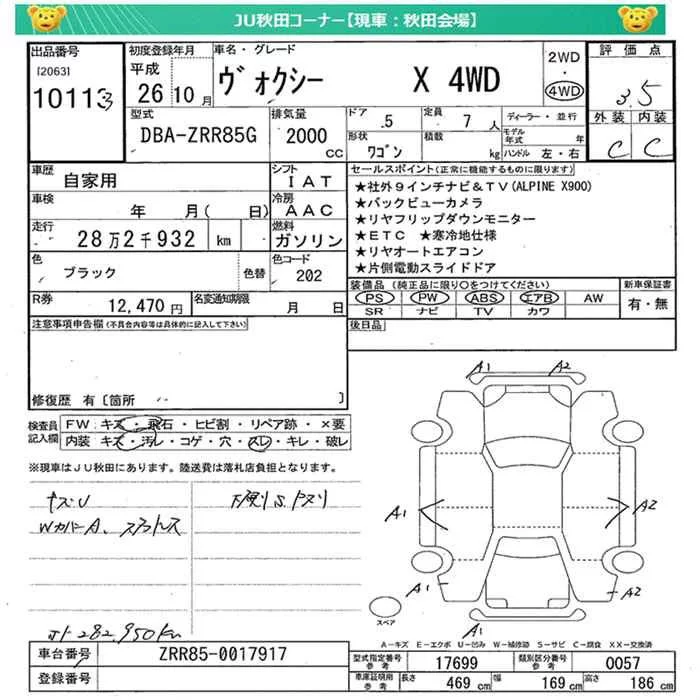 JU秋田コーナー【現車：秋田会場】
出品番号 初度登録年月 車名・グレード 評価点
[2063] 平成 ヴォクシー X 4WD 2WD
・
10113 26 年 10 月 4WD 3.5
型式 排気量 ドア 定員 ディーラー・並行 外装 内装
DBA-ZRR85G 2000 cc 5 7 人 モデル年式 年 C C
形状 積載
ワゴン kg ハンドル 左・右
車歴 シフト セールスポイント(正常に機能するものに限ります)
自家用 IAT ★社外9インチナビ&TV(ALPINE X900)
車検 冷房 ★バックビューカメラ
年 月( 日) AAC ★リヤフリップダウンモニター
走行 燃料 ★ETC ★寒冷地仕様
28万2千932 km ガソリン ★リヤオートエアコン
色 色替 色コード ★片側電動スライドドア
ブラック 202
装備品 (純正品に限り○をつけてください) 新車保証書
R券 12,470 円 名変通知期限 月 日 PS PW ABS エアB AW 有・無
SR ナビ TV カワ
注意事項申告欄(不具合内容等は具体的に記入して下さい) 後日品
修復歴 有〔箇所 〕
A1 A2
検査員 FW: キズ・飛石・ヒビ割・リペア跡・×要
記入欄 内装: キズ・汚レ・コゲ・穴・スレ・キレ・破レ
※現車はJU秋田にあります。陸送費は落札店負担となります。
キズU 下廻りS.キズリ
WカバーA、スタットレス
A1 A2
A1 A2
スペア
メーター 282,950km
A:キズ E:エクボ U:凹み W:補修跡 S:サビ C:腐食 XX:交換済
車台番号 ZRR85-0017917 型式指定番号 参考 17699 類別区分番号 参考 0057
登録番号 車庫証明用 参考 長さ 469 cm 幅 169 cm 高さ 186 cm